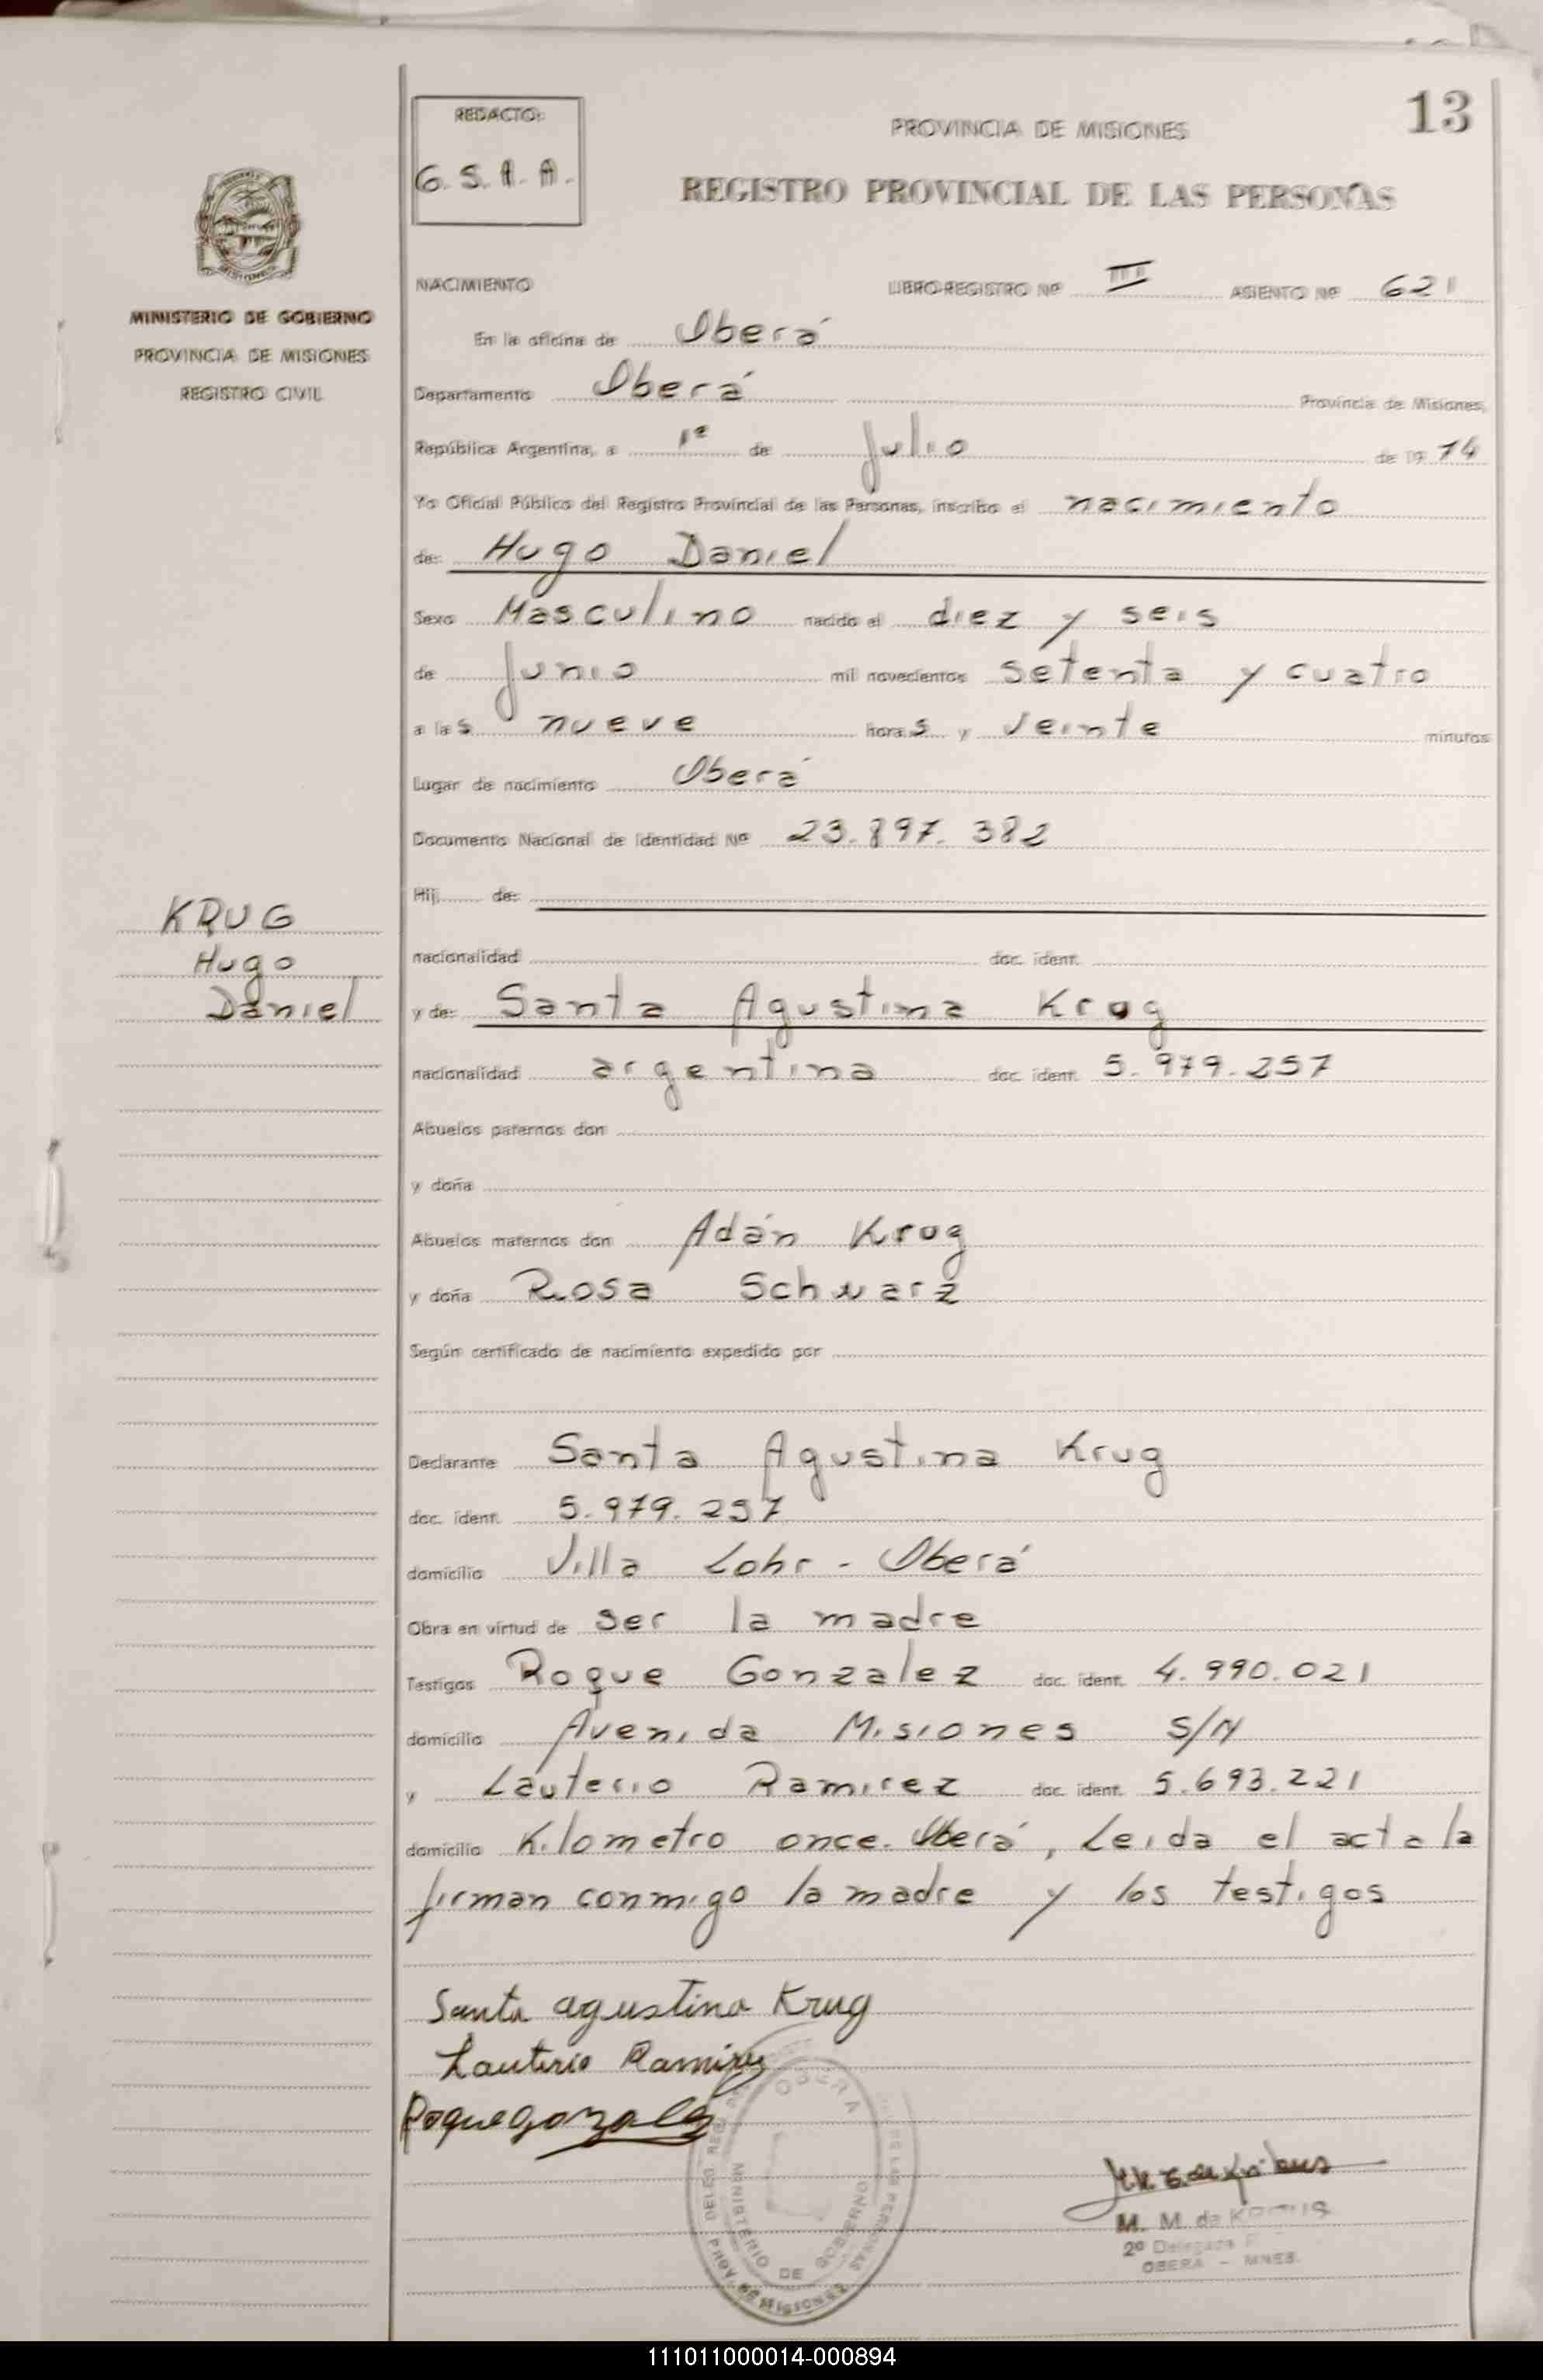 13
REDACTO:
G. S. A. A.
PROVINCIA DE MISIONES
REGISTRO PROVINCIAL DE LAS PERSONAS
MINISTERIO DE GOBIERNO
PROVINCIA DE MISIONES
REGISTRO CIVIL
NACIMIENTO LIBRO-REGISTRO Nº III ASIENTO Nº 621
En la oficina de Oberá
Departamento Oberá Provincia de Misiones,
República Argentina, a 1º de Julio de 19 74
Yo Oficial Público del Registro Provincial de las Personas, inscribo el nacimiento
de: Hugo Daniel
Sexo Masculino nacido el diez y seis
de Junio mil novecientos setenta y cuatro
a las nueve horas y veinte minutos
Lugar de nacimiento Oberá
Documento Nacional de Identidad Nº 23.897.382
Hij de:
KRUG
Hugo
Daniel
nacionalidad doc. ident.
y de: Santa Agustina Krug
nacionalidad argentina doc. ident. 5.979.257
Abuelos paternos don
y doña
Abuelos maternos don Adán Krug
y doña Rosa Schwarz
Según certificado de nacimiento expedido por
Declarante Santa Agustina Krug
doc. ident. 5.979.257
domicilio Villa Lohr - Oberá
Obra en virtud de ser la madre
Testigos Roque Gonzalez doc. ident. 4.990.021
domicilio Avenida Misiones S/N
y Lauterio Ramirez doc. ident. 5.693.221
domicilio Kilometro once. Oberá, Leida el acta la
firman conmigo la madre y los testigos
Santa agustina Krug
Lauterio Ramirez
Roque gonzalez
OBERA
MINISTERIO DE GOBIERNO
PROV. DE MISIONES
M. M. de
2º
OBERA - MNES.
111011000014-000894